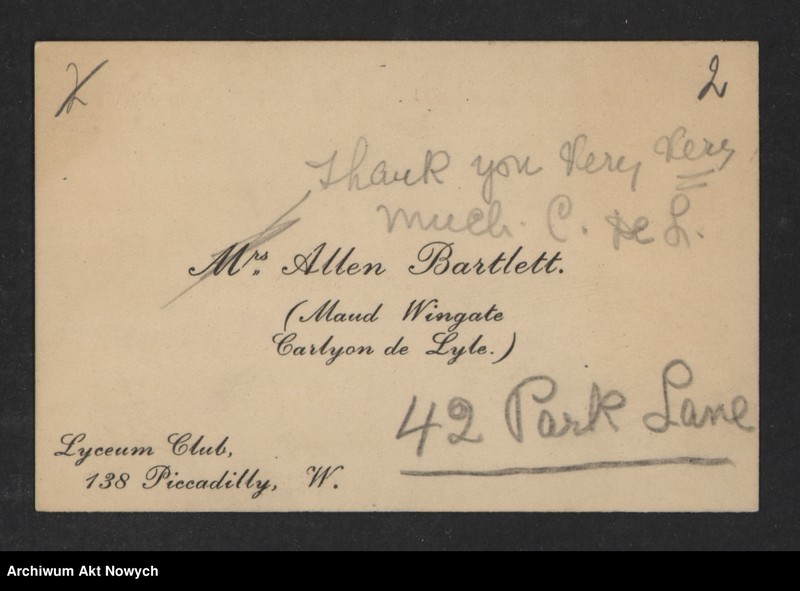 2
Thank you very very
much. C. de L.
Mrs. Allen Bartlett.
(Maud Wingate
Carlyon de Lyle.)
42 Park Lane
Lyceum Club,
138 Piccadilly, W.
Archiwum Akt Nowych